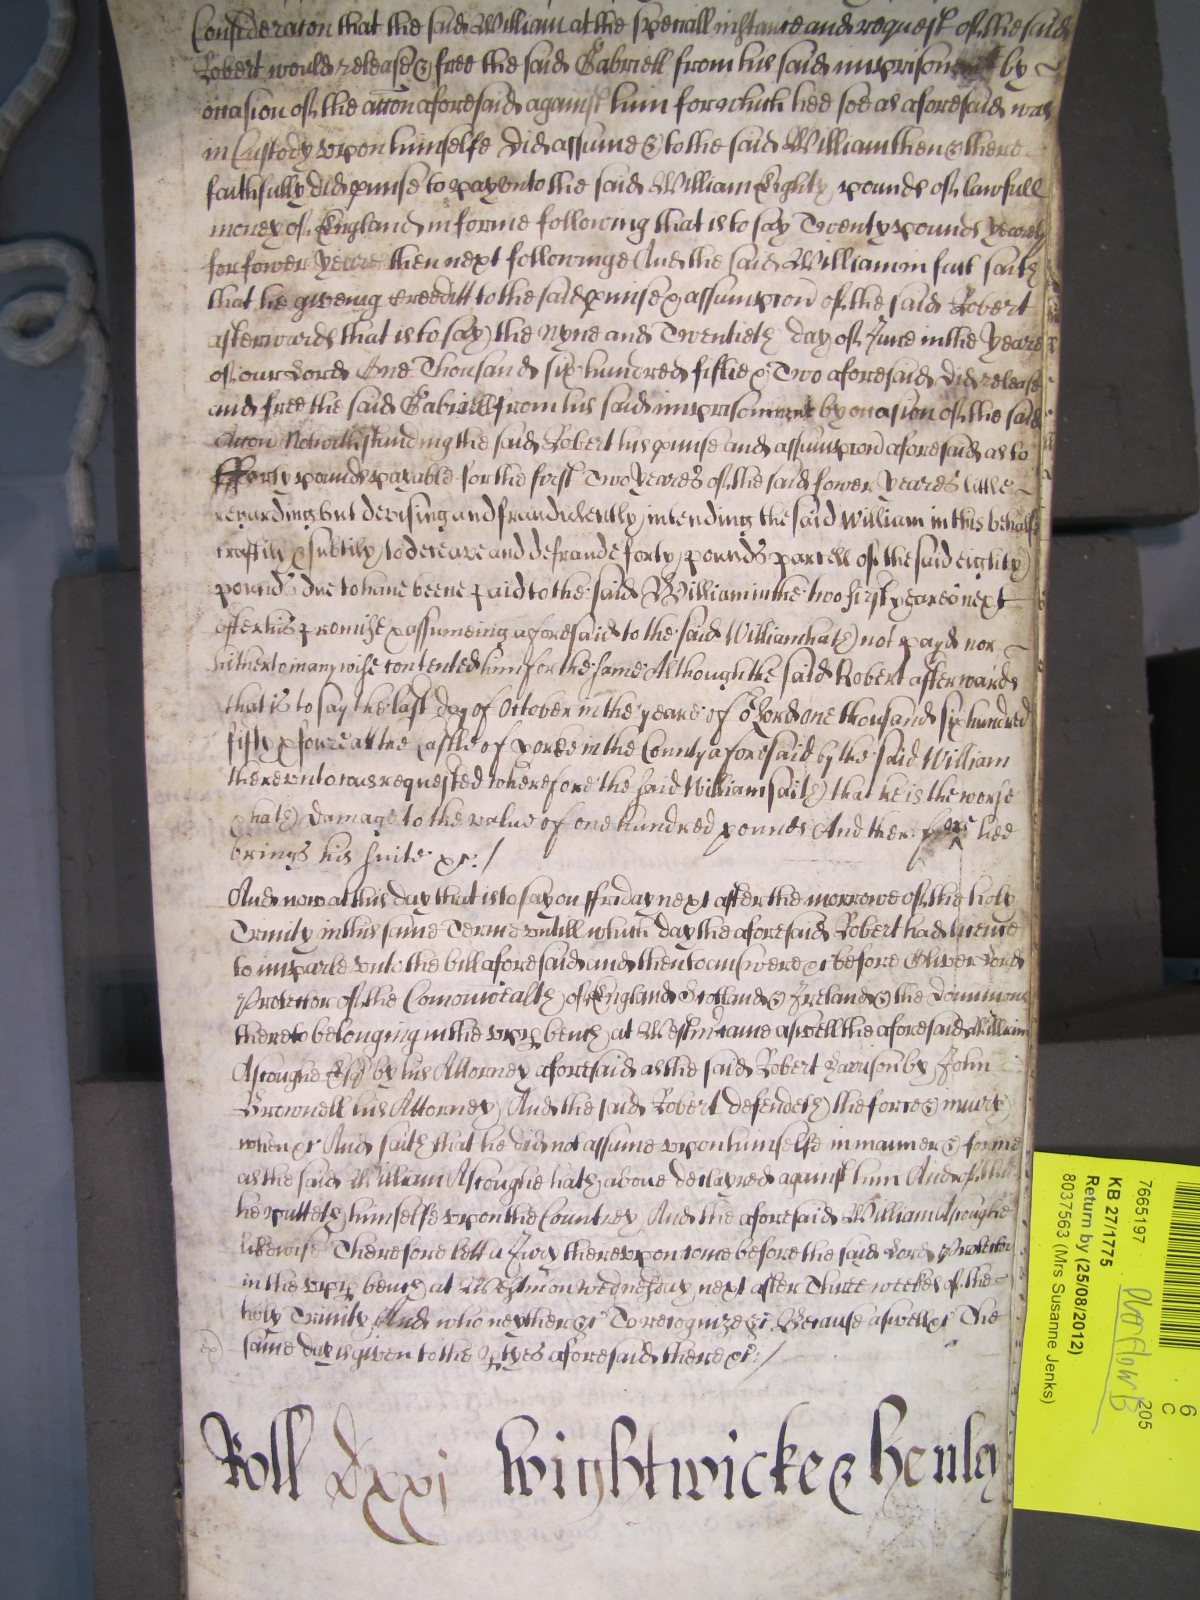 Consideracon that the said William at the speciall instance and request of the said
Robert would release & free the said Gabriell from his said imprisonm by
occasion of the accon aforesaid against him for which hee soe as aforesaid was
in Custody upon himselfe Did assume & to the said William then & there
faithfully did pmise to pay unto the said William Eighty pounds of lawfull
money of England in forme following that is to say Twenty pounds yearely
for fower yeares then next followinge And the said William in fact saith
that he giveing creeditt to the said pmise & assumpcon of the said Robert
afterwards that is to say the nyne and Twentieth day of June in the yeare
of our Lord One Thousand six hundred fiftie & Two aforesaid did release
and free the said Gabriell from his said imprisonment by occasion of the said
Accon Notwithstanding the said Robert his pmise and assumpcon aforesaid as to
fforty pounds payable for the first Two yeares of the said fower yeares little
regarding but devising and fraudulently intending the said William in this behalfe
craftily & subtily to deceave and defraude forty pounds parcell of the said eighty
pounds due to have beene paid to the said William in the two first yeares next
after his promise & assumeing aforesaid to the said William hath not payd nor
hitherto in any wise contented him for the same Although the said Robert afterwards
that is to say the last day of October in the yeare of or Lord one thousand six hundred
fifty & foure at the Castle of Yorke in the County aforesaid by the said William
thereunto was requested wherefore the said William saith that he is the worse
& hath damage to the value of one hundred pounds And therefore hee
brings his suite &c:/
And now at this day that is to say on ffriday next after the morrowe of the holy
Trinity in this same Terme untill which day the aforesaid Robert had licence
to imparle unto the bill aforesaid and then to answere &c before Oliver Lord
Protector of the Comonwealth of England Scotland & Ireland & the Dominions
thereto belonging in the uppr bench at Westmr came aswell the aforesaid William
Ascoughe Esqr by his Attorney aforesaid as the said Robert Harrison by John
Brownell his Attorney And the said Robert defendeth the force & iniury
when &c And saith that he did not assume upon himselfe in manner & forme
as the said William Ascoughe hath above declared against him And of this
he putteth himselfe upon the Countrey And the aforesaid William Ascoughe
likewise Therefore lett a Jury thereupon come before the said Lord Protector
in the uppr bench at Westmr on wednesday next after Three weekes of the
holy Trinity And who neyther &c To recognize &c Because aswell &c The
same day is given to the ptyes aforesaid there &c:/
Roll dxxvj Wightwicke & Henley
7665197
KB 27/1775
Return by (25/08/2012)
8037563 (Mrs Susanne Jenks)
205
6
C